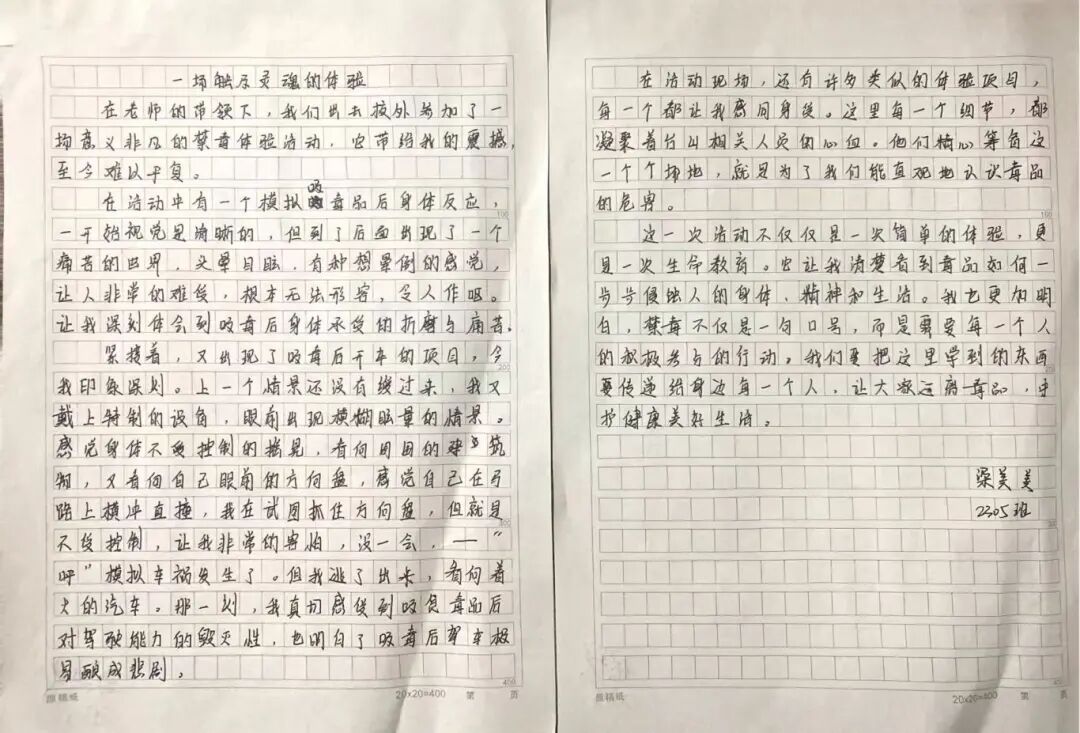 一场触及灵魂的体验
在老师的带领下，我们出去校外参加了一
场意义非凡的禁毒体验活动，它带给我的震撼，
至今难以平复。
在活动中有一个模拟吸毒品后身体反应，
一开始视觉是清晰的，但到了后面出现了一个
痛苦的世界，头晕目眩，有种想晕倒的感觉，
让人非常的难受，根本无法形容，令人作呕。
让我深刻体会到吸毒后身体承受的折磨与痛苦。
紧接着，又出现了吸毒后开车的项目，令
我印象深刻。上一个情景还没有缓过来，我又
戴上特制的设备，眼前出现模糊眩晕的情景。
感觉身体不受控制的摇晃，看向周围的建筑
物，又看向自己眼前的方向盘，感觉自己在马
路上横冲直撞，我在试图抓住方向盘，但就是
不受控制，让我非常的害怕，没一会，一“
呯”模拟车祸发生了。但我逃了出来，看向着
火的汽车。那一刻，我真切感受到吸食毒品后
对驾驶能力的毁灭性，也明白了吸毒后驾车极
易酿成悲剧。
原稿纸
20×20=400
第 页
100
200
300
400
在活动现场，还有许多类似的体验项目，
每一个都让我感同身受。这里每一个细节，都
凝聚着台山相关人员的心血。他们精心筹备这
一个个场地，就是为了我们能直观地认识毒品
的危害。
这一次活动不仅仅是一次简单的体验，更
是一次生命教育。它让我清楚看到毒品如何一
步步侵蚀人的身体、精神和生活。我也更加明
白，禁毒不仅是一句口号，而是需要每一个人
的积极参与的行动。我们要把这里学到的东西
要传递给身边每一个人，让大家远离毒品，守
护健康美好生活。
梁美美
2305班
原稿纸
20×20=400
第 页